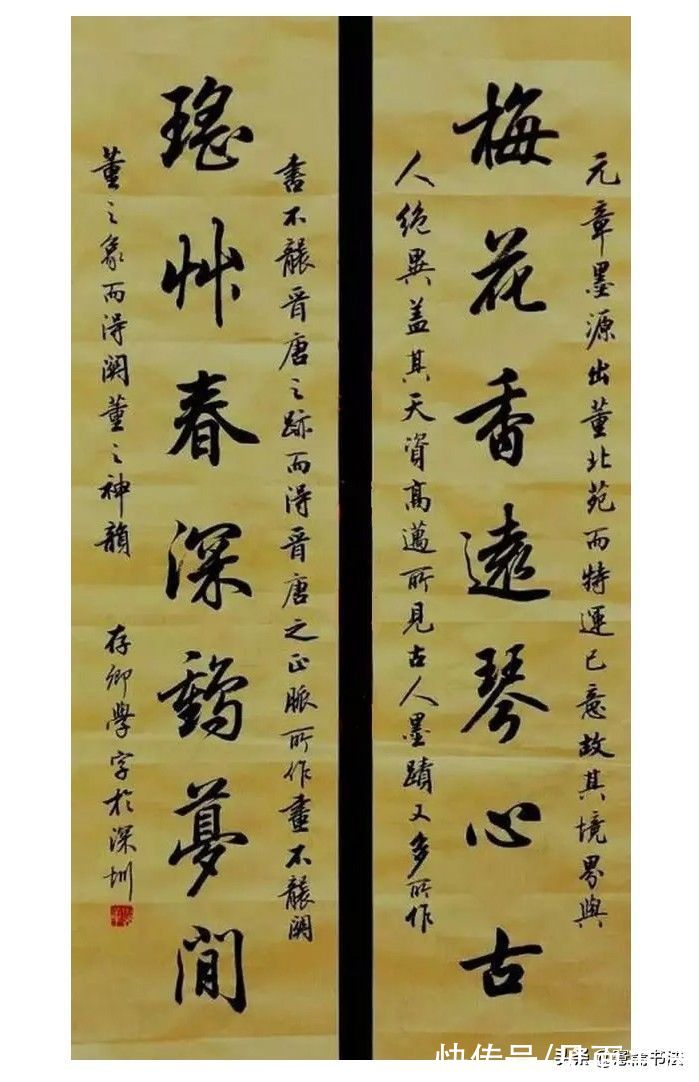 元章墨源出董北苑而特運已意故其境界與
梅花香遠琴心古
人絶異盖其天資高邁所見古人墨蹟又多所作
書不襲晋唐之跡而得晋唐之正脈所作畫不襲關
瑤艸春深鶴夢閒
董之象而得關董之神韻
存卿學字於深圳
快传号/
头条
书法